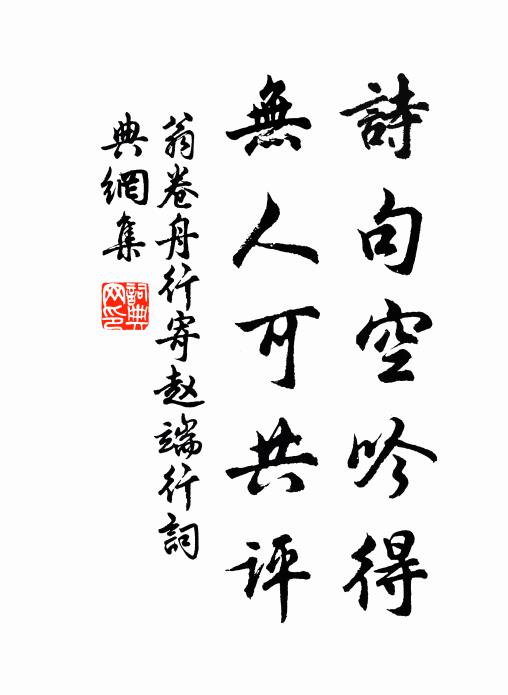 詩句空吟得
無人可共評
翁卷舟行寄赵端行詞
典網集
詞典网印